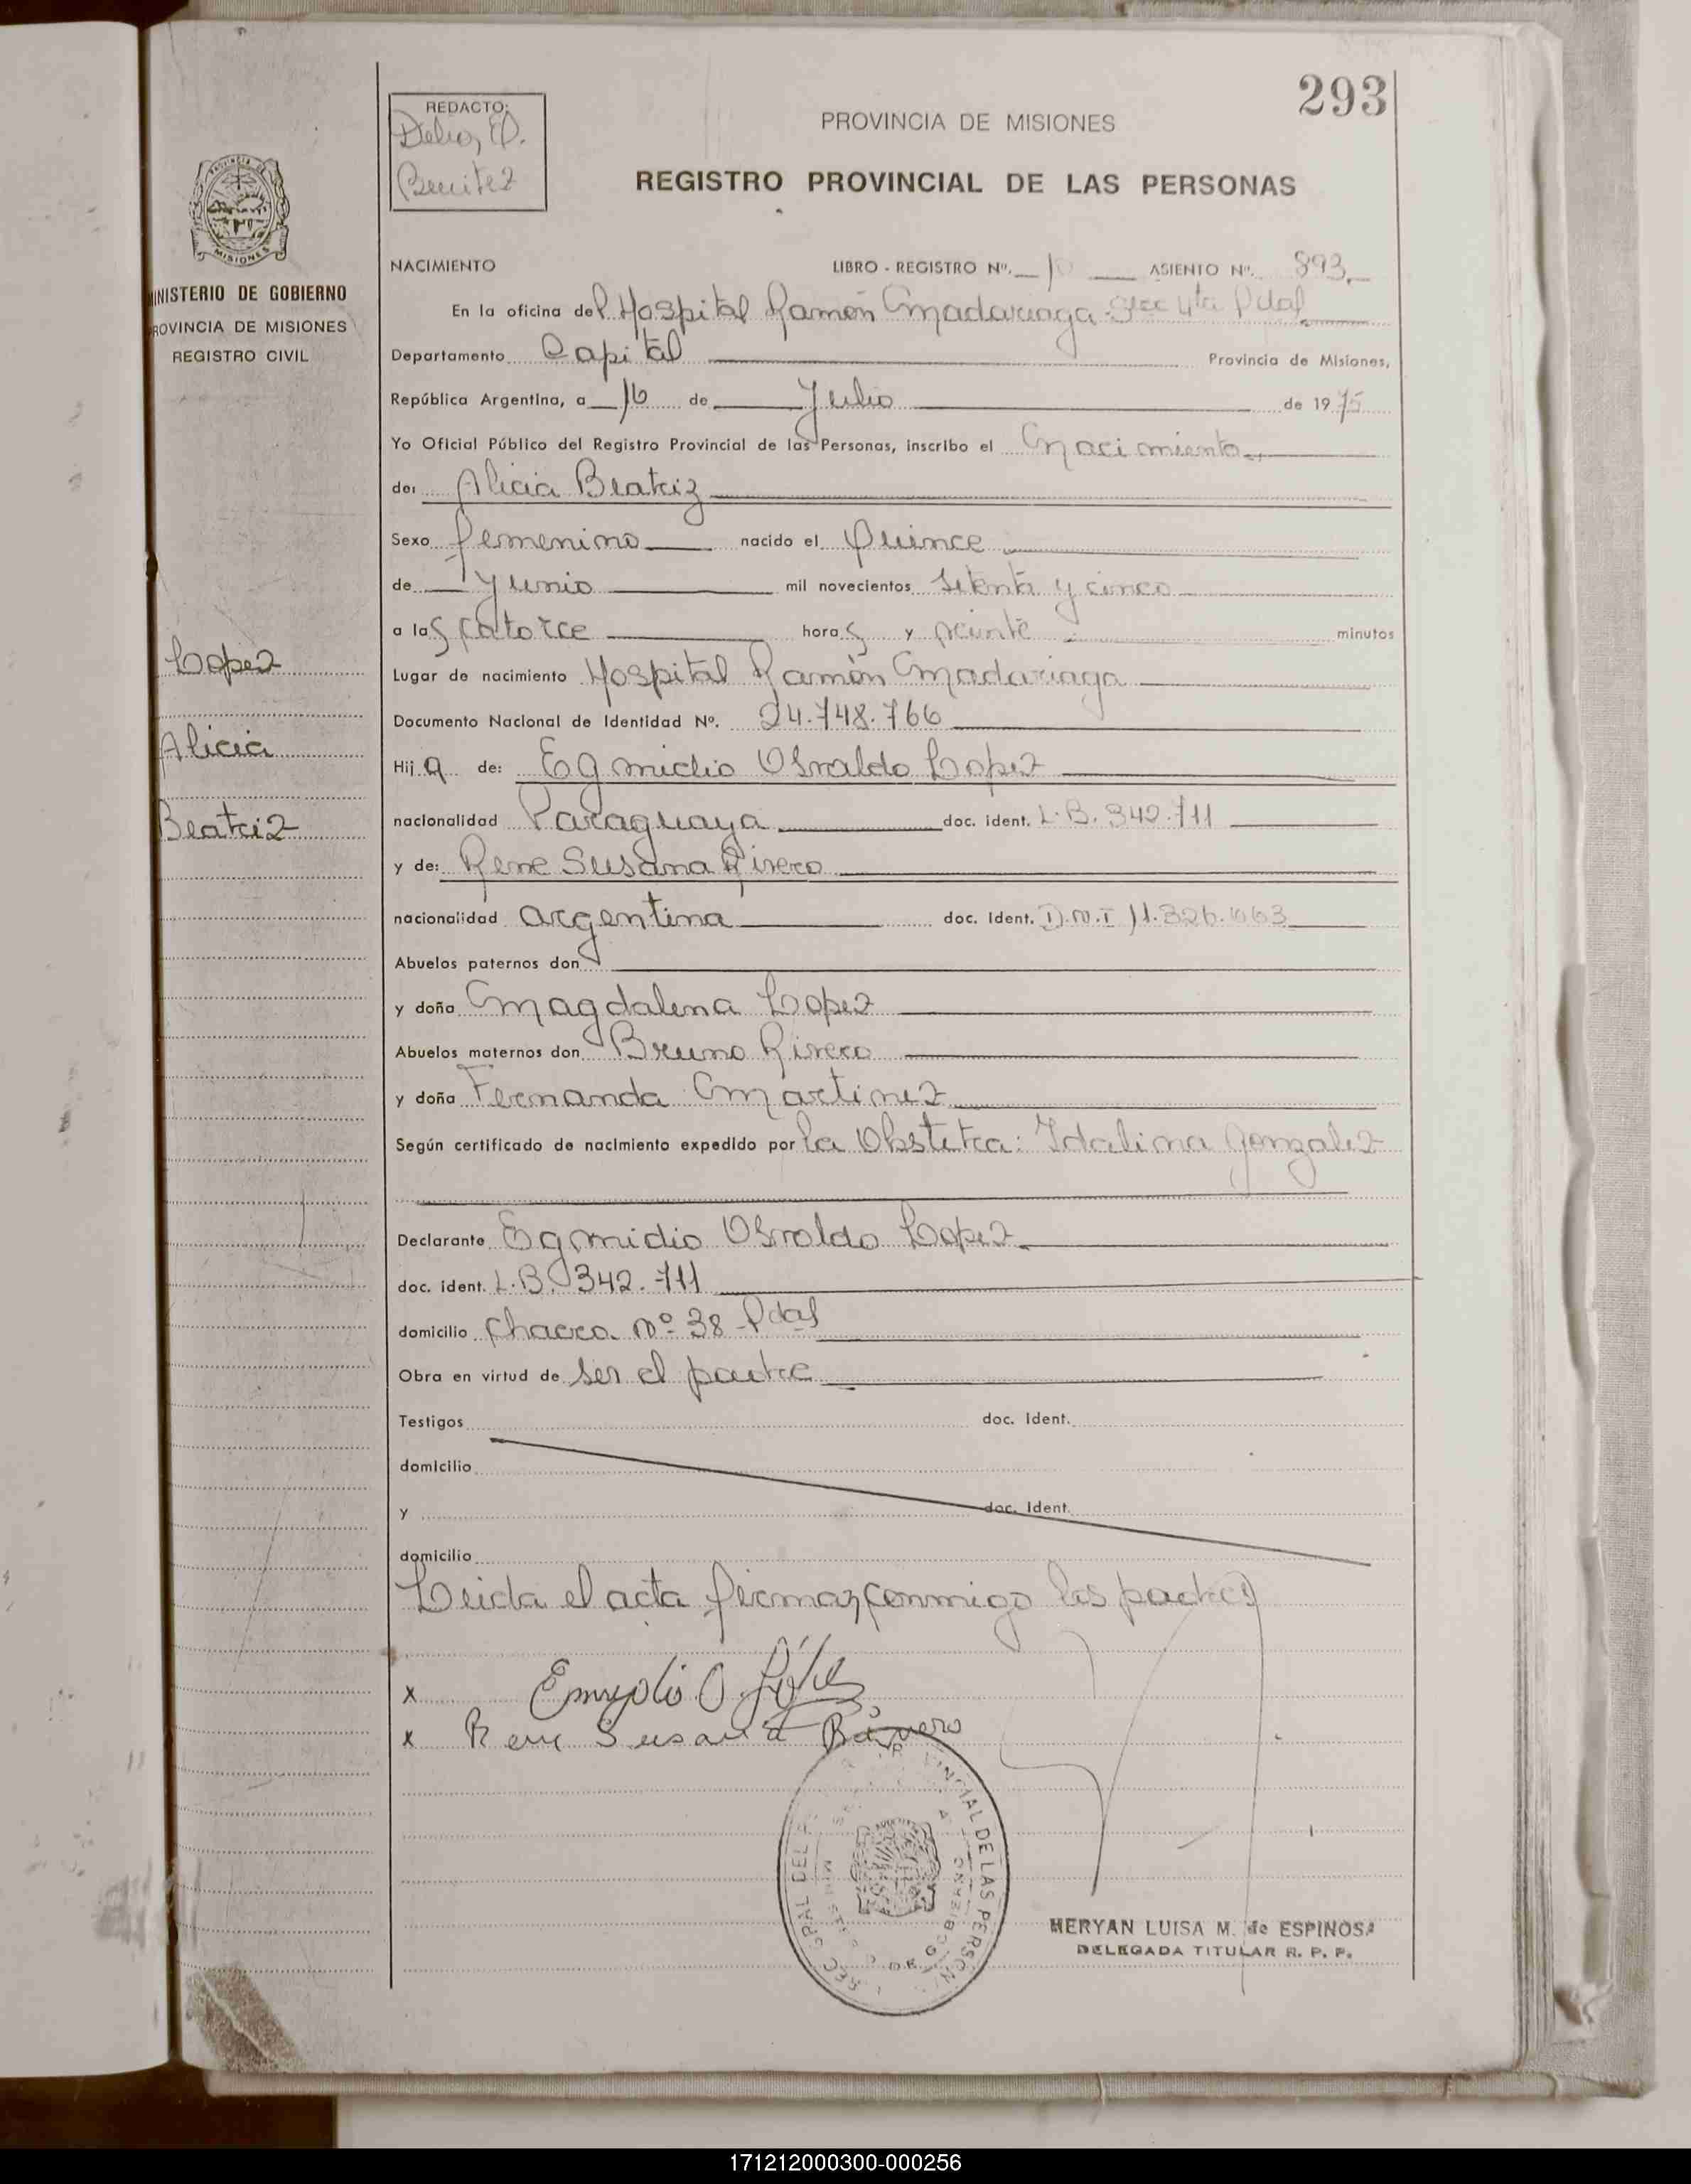 293
REDACTO:
Benitez
PROVINCIA DE MISIONES
REGISTRO PROVINCIAL DE LAS PERSONAS
MISIONES
MINISTERIO DE GOBIERNO
PROVINCIA DE MISIONES
REGISTRO CIVIL
NACIMIENTO LIBRO - REGISTRO Nº. ASIENTO Nº. 893
En la oficina del Hospital Ramón Madariaga Secc 4ta Pdas
Departamento Capital Provincia de Misiones,
República Argentina, a 16 de Julio de 1975
Yo Oficial Público del Registro Provincial de las Personas, inscribo el Nacimiento
de: Alicia Beatriz
Sexo femenino nacido el Quince
de Junio mil novecientos setenta y cinco
a las catorce horas y veinte minutos
Lopez
Alicia
Beatriz
Lugar de nacimiento Hospital Ramón Madariaga
Documento Nacional de Identidad Nº. 24.748.766
Hija de: Egmidio Osvaldo Lopez
nacionalidad Paraguaya doc. ident. L.B. 342.711
y de: Rene Susana Rivero
nacionalidad argentina doc. ident. D.N.I 11.326.063
Abuelos paternos don
y doña Magdalena Lopez
Abuelos maternos don Bruno Rivero
y doña Fernanda Martinez
Según certificado de nacimiento expedido por la Obstetra: Idalina Gonzalez
Declarante Egmidio Osvaldo Lopez
doc. ident. L.B. 342.711
domicilio Chacra Nº 38 Pdas
Obra en virtud de ser el padre
Testigos doc. ident.
domicilio
y doc. ident.
domicilio
Leida el acta firman conmigo los padres
x
x Rene Susana Rivero
MERYAN LUISA M. de ESPINOSA
DELEGADA TITULAR R. P. P.
171212000300-000256